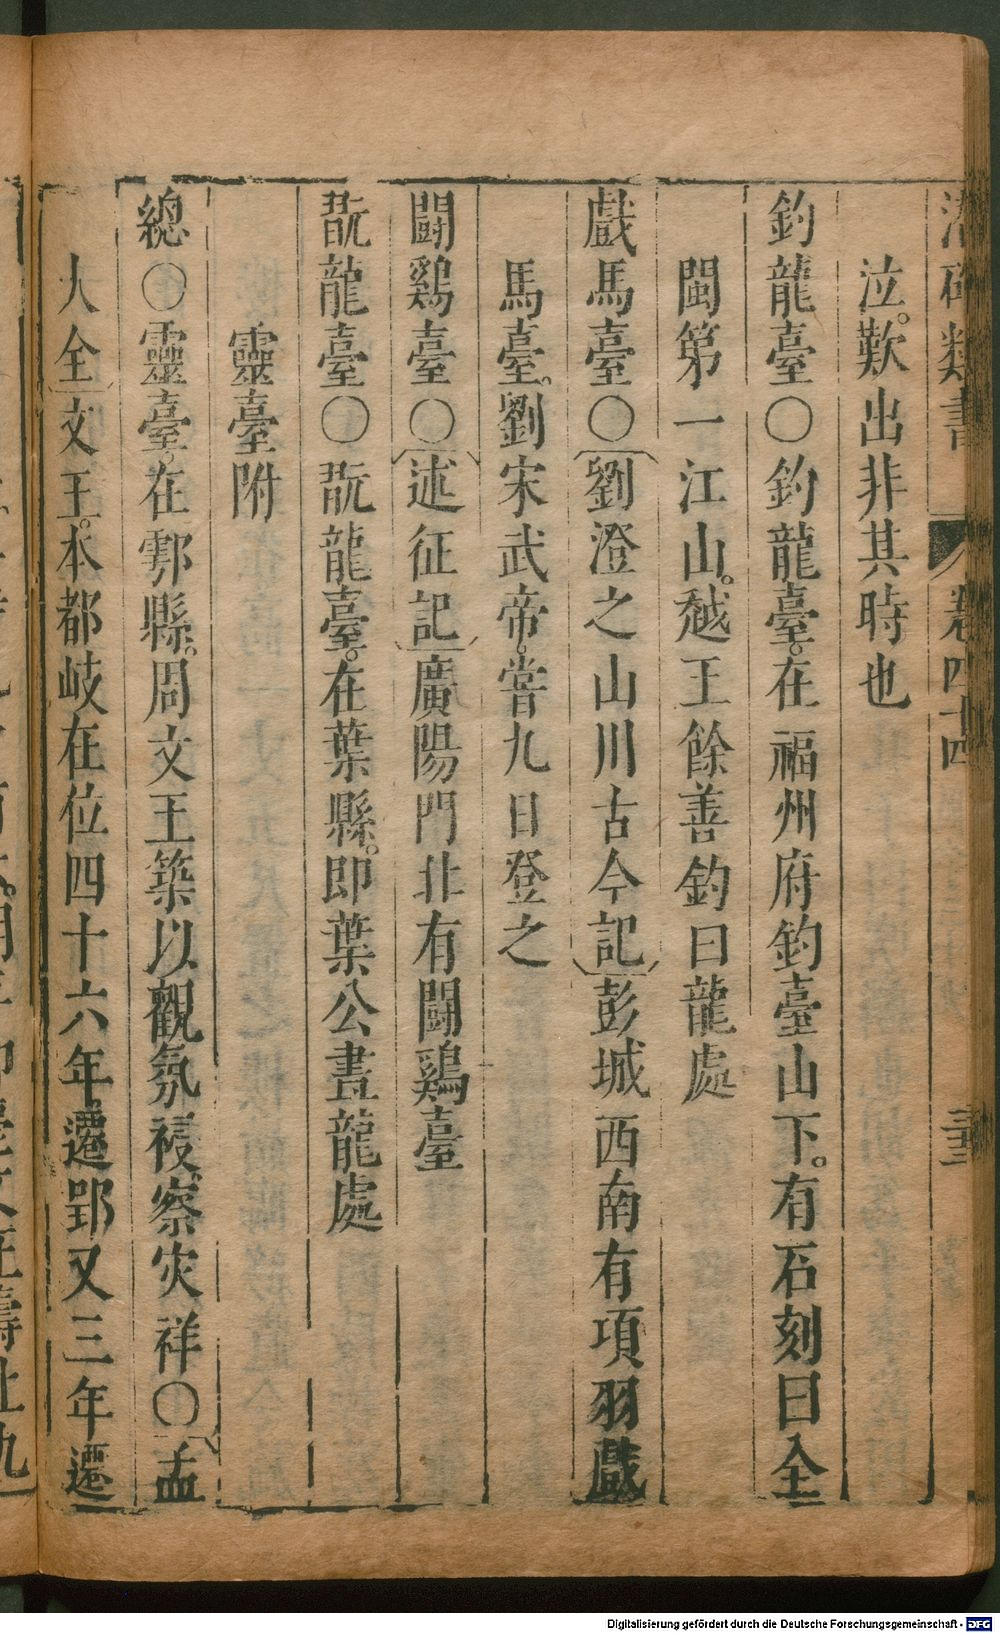 潛確類書 卷四十四 三十三
泣。歎出非其時也
釣龍臺○釣龍臺。在福州府釣臺山下。有石刻曰全
閩第一江山。越王餘善釣白龍處
戲馬臺○劉澄之山川古今記彭城西南有項羽戲
馬臺。劉宋武帝。嘗九日登之
鬪鷄臺○述征記廣陽門北有鬪鷄臺
翫龍臺○翫龍臺。在葉縣。即葉公畫龍處
靈臺附
總○靈臺。在鄠縣。周文王築以觀氛祲。察灾祥○孟
大全文王。本都岐在位四十六年。遷郢又三年遷
Digitalisierung gefördert durch die Deutsche Forschungsgemeinschaft - DFG